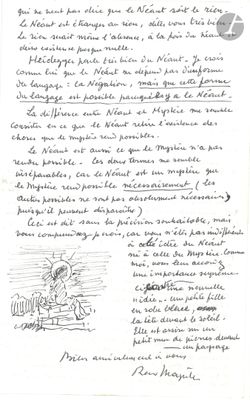 qui ne veut pas dire que le Néant soit le rien.
Le Néant est étranger au rien, dites vous très bien :
Le rien serait même l'absence, à la fois du néant et
d'une existence presque nulle.
Heidegger parle très bien du Néant. Je crois
comme lui que le Néant ne dépend pas d'une forme
du langage : la Négation, mais que cette forme
du langage est possible parce qu'il y a le Néant.
La différence entre Néant et Mystère me semble
consister en ce que le Néant retire l'existence des
choses que le mystère rend possibles.
Le Néant est aussi ce que le Mystère n'a pas
rendu possible. Les deux termes me semble
inséparables, car le Néant est un mystère que
le Mystère rend possible nécessairement (les
autres possibles ne sont pas absolument nécessaires,
puisqu'ils peuvent disparaître)
Ceci est dit sans la précision souhaitable, mais
vous comprendrez je crois, car vous n'êtes pas indifférent
à cette idée du Néant
ni à celle du Mystère. Comme
moi, vous leur accordez
une importance suprême.
une nouvelle
idée : une petite fille
en robe bleue,
la tête devant le soleil.
Elle est assise sur un
petit mur de pierres devant
un paysage
Bien amicalement à vous
René Magritte